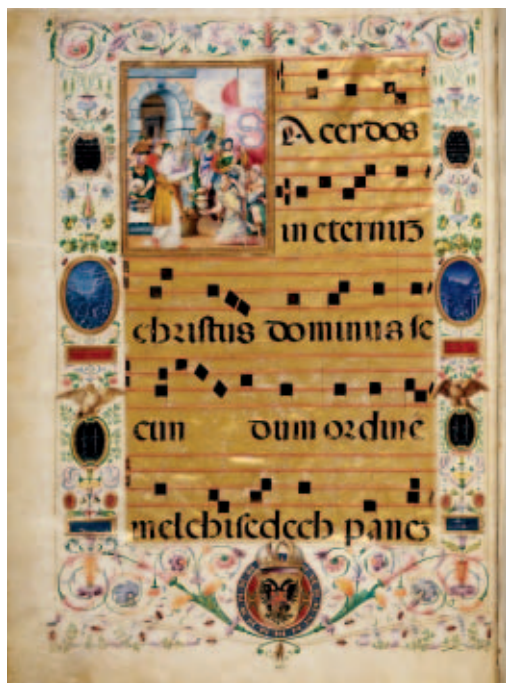 SAcerdos
in eternuʒ
christus dominus se
cun dum ordinē
melchisedech paneʒ